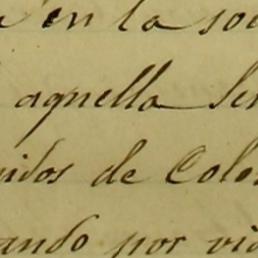 en la soc
aquella Señ
uidos de Colo
ando por vid